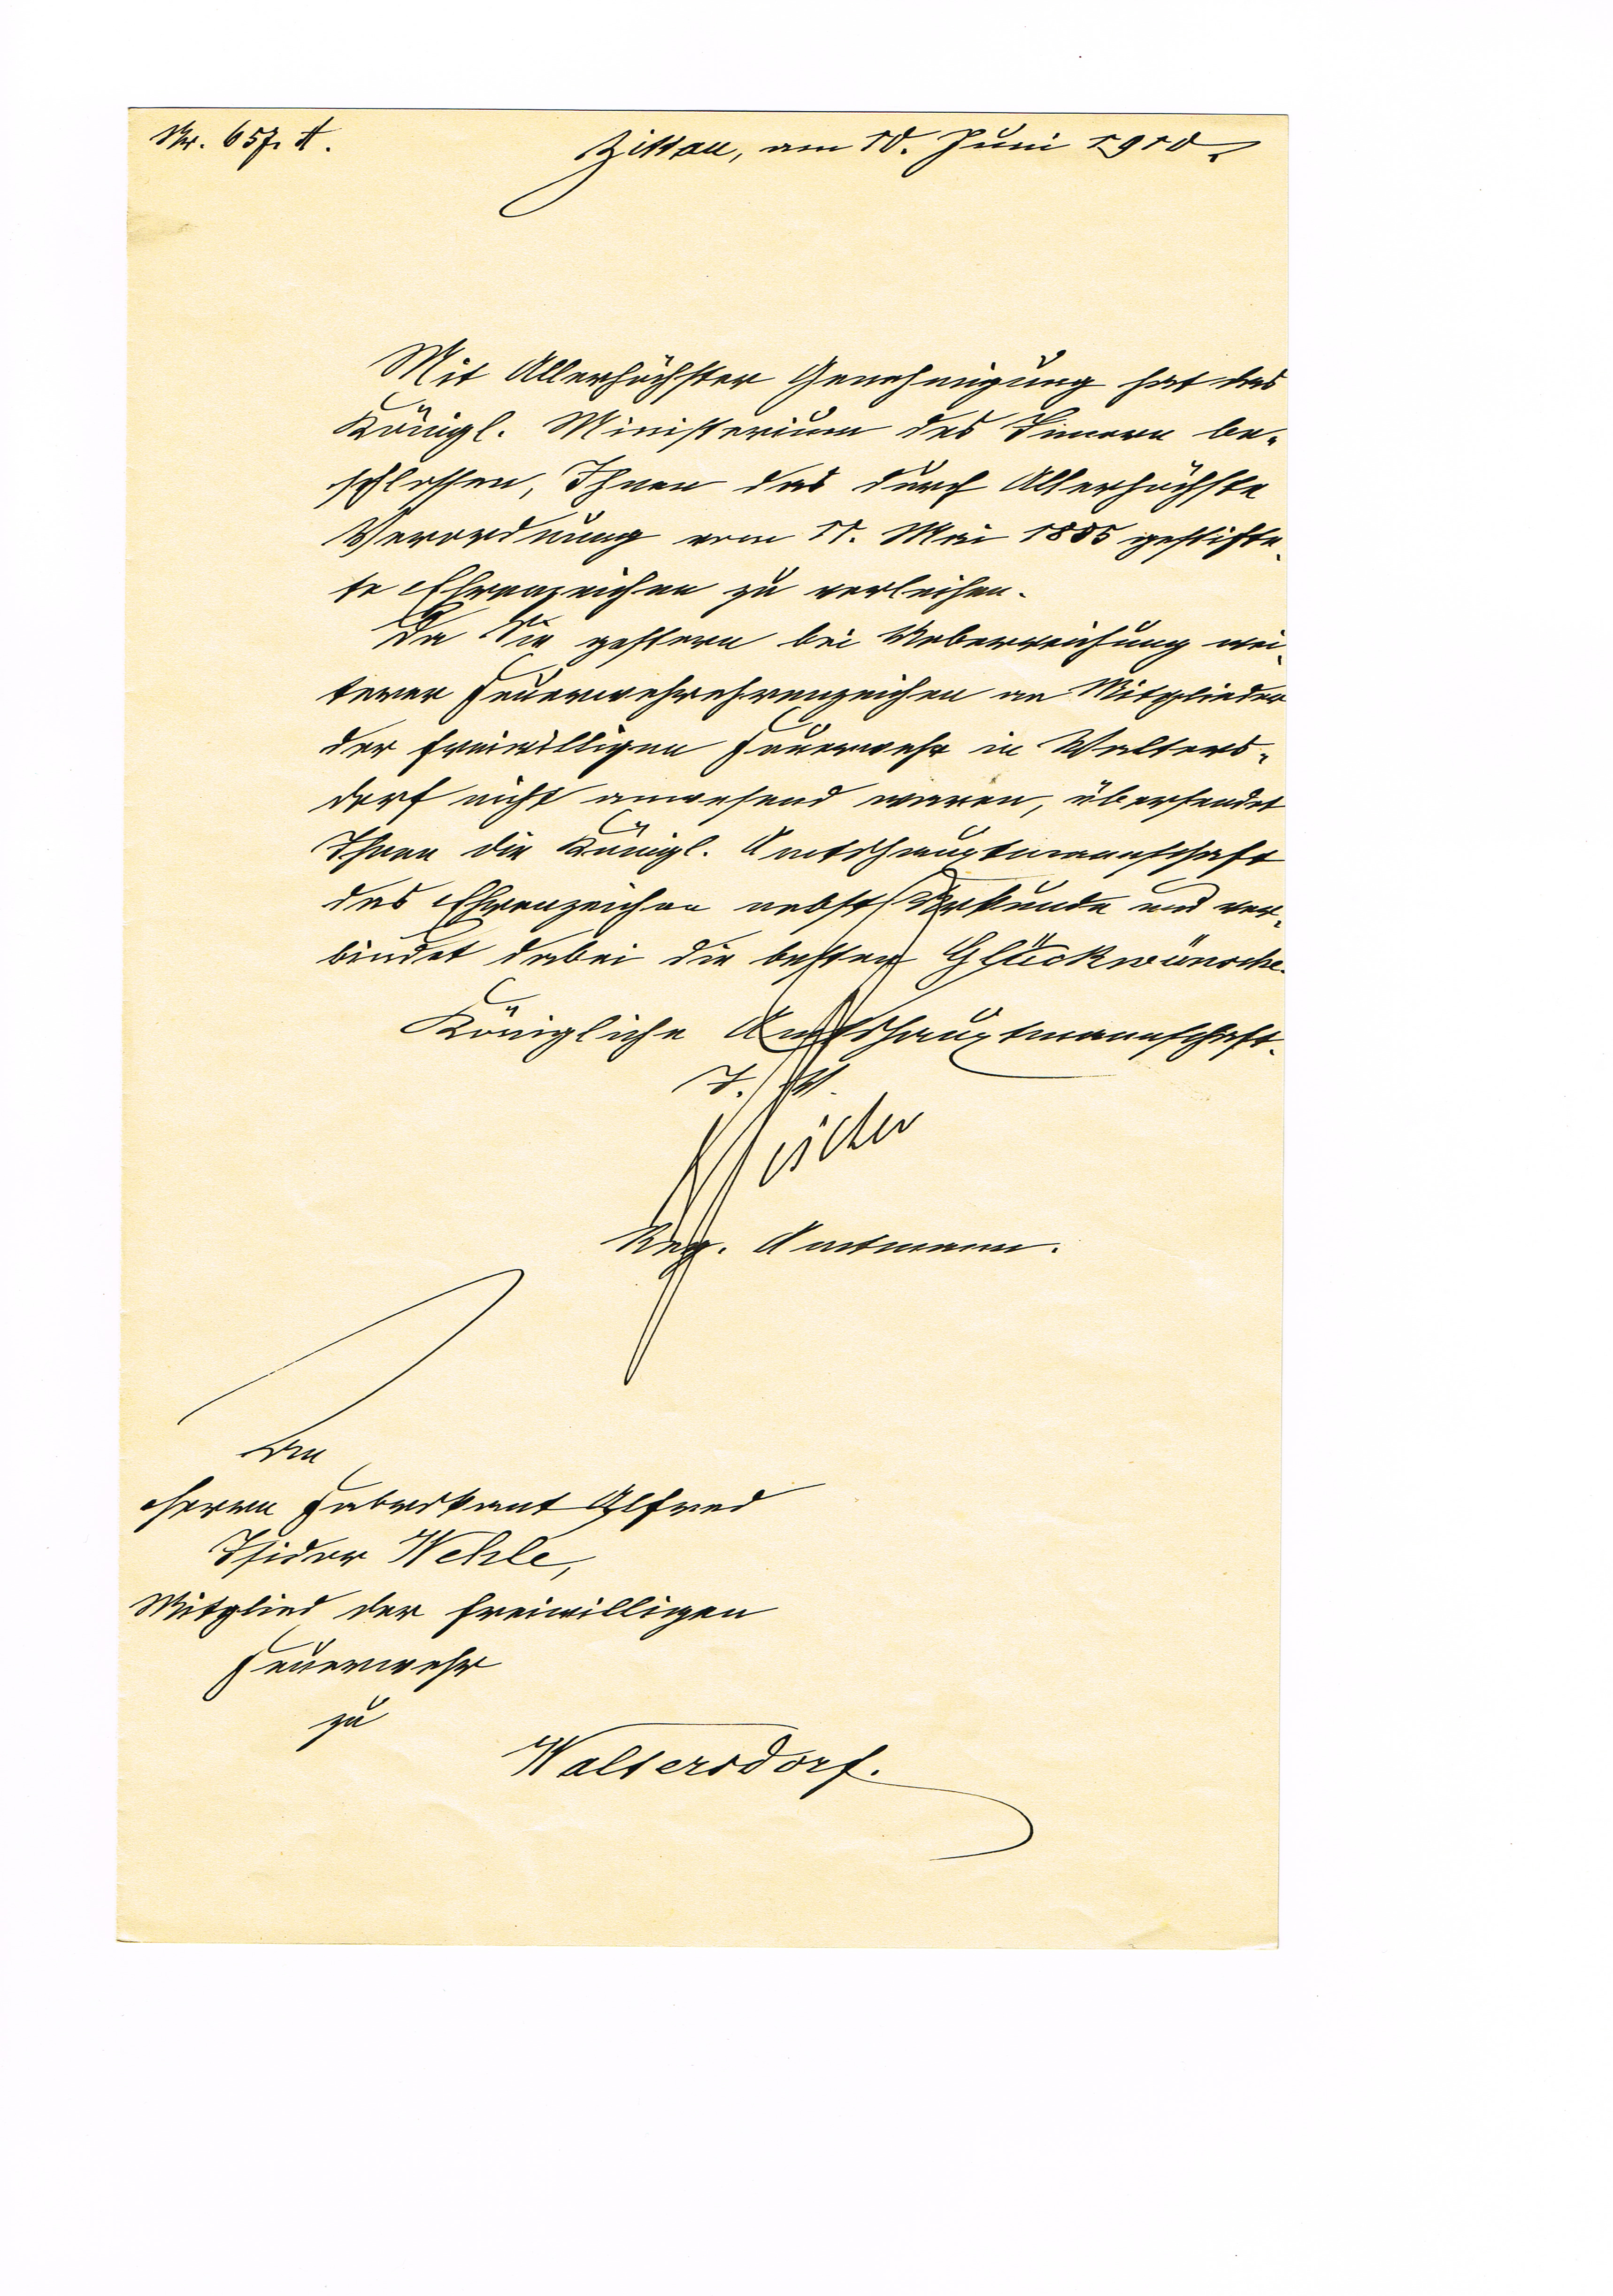 Nr. 657. A.
Zittau, am 10. Juni 1910.
Mit Allerhöchster Genehmigung hat das
Königl. Ministerium des Innern be-
schlossen, Ihnen das durch Allerhöchste
Verordnung vom 11. Mai 1885 gestifte-
te Ehrenzeichen zu verleihen.
Da Sie gestern bei Ueberreichung wei-
terer Feuerwehrehrenzeichen an Mitglieder
der freiwilligen Feuerwehr in Walters-
dorf nicht anwesend waren, übersendet
Ihnen die Königl. Amtshauptmannschaft
das Ehrenzeichen nebst Urkunde und ver-
bindet dabei die besten Glückwünsche.
Königliche Amtshauptmannschaft.
I. V.
Reg. Amtmann.
An
Herrn Fabrikant Alfred
Isidor Wehle,
Mitglied der freiwilligen
Feuerwehr
zu
Waltersdorf.